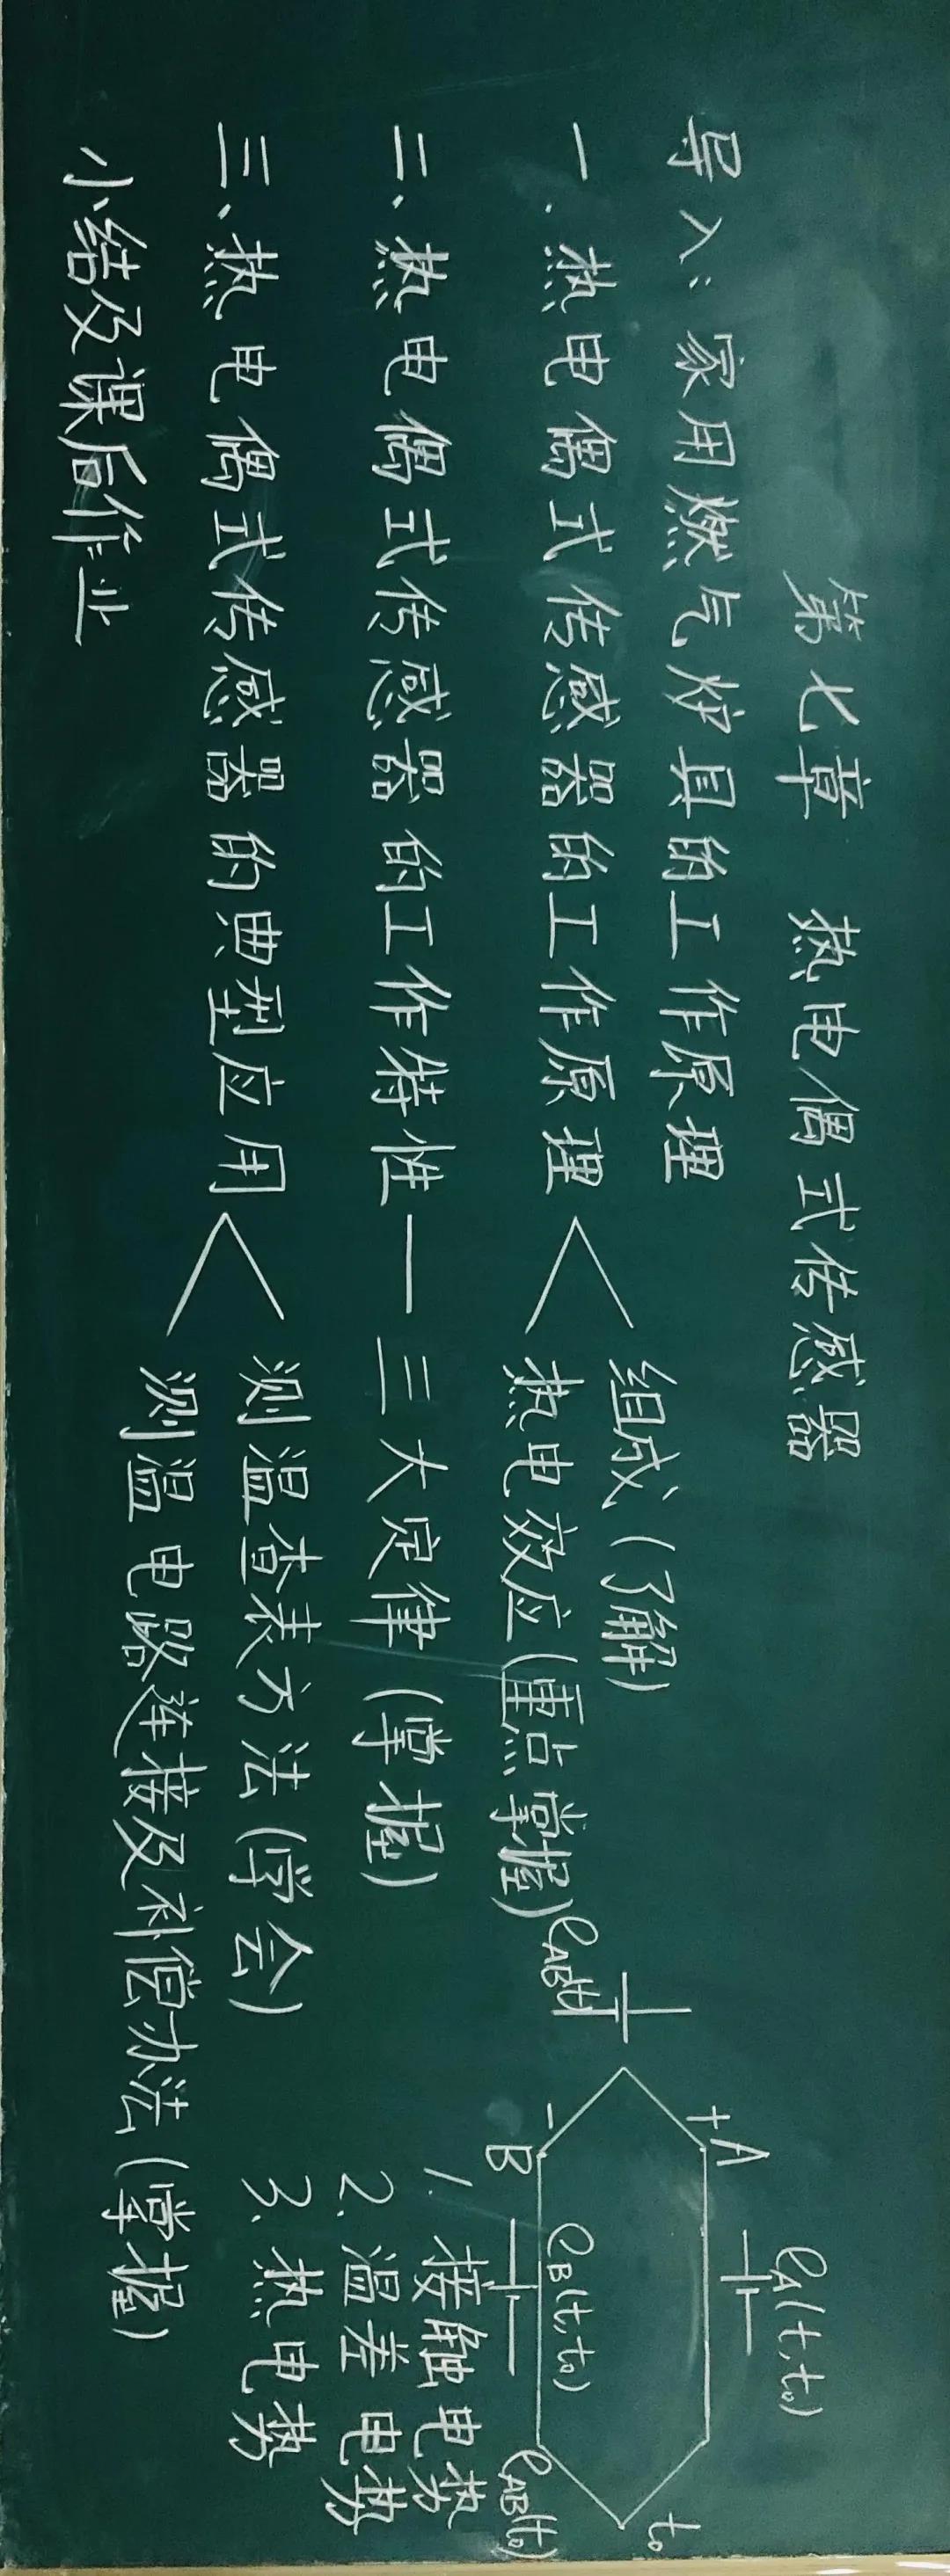 第七章 热电偶式传感器
导入:家用燃气灶具的工作原理
一、热电偶式传感器的工作原理
组成(了解)
热电效应(重点掌握)
二、热电偶式传感器的工作特性—三大定律(掌握)
三、热电偶式传感器的典型应用
测温查表方法(学会)
测温电路连接及补偿办法(掌握)
小结及课后作业
eA(t,t₀)
+A
t₀
eAB(t)
eB(t,t₀)
- B
eAB(t₀)
1. 接触电势
2. 温差电势
3. 热电势